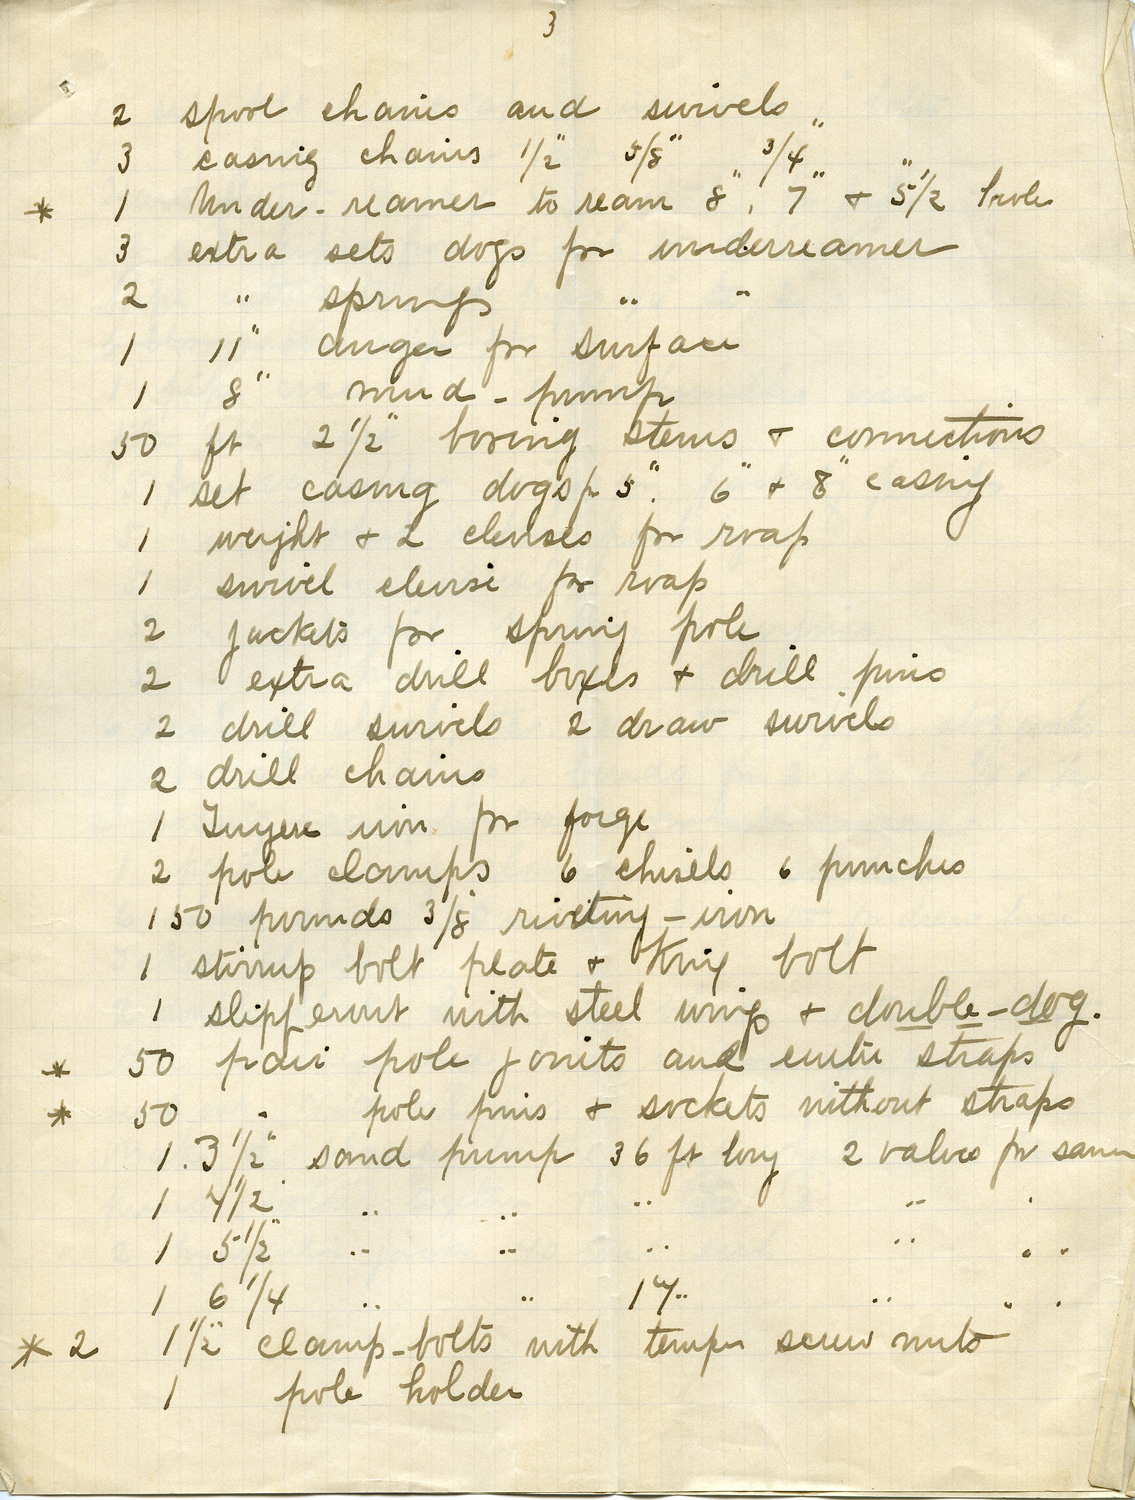 3
2 spool chains and swivels
3 casing chains 1/2" 5/8" 3/4"
* 1 Under-reamer to ream 8", 7" & 5 1/2" hole
3 extra sets dogs for underreamer
2 " springs " "
1 11" auger for surface
1 8" mud-pump
50 ft 2 1/2" boring stems & connections
1 set casing dogs for 5", 6" & 8" casing
1 weight & 2 clevises for roap
1 swivel clevise for roap
2 jackets for spring pole
2 extra drill boxes & drill pins
2 drill swivels 2 draw swivels
2 drill chains
1 Tuyere iron for forge
2 pole clamps 6 chisels 6 punches
150 pounds 3/8" riveting-iron
1 stirrup bolt plate & King bolt
1 slip with steel wings & double-dog.
* 50 pair pole joints and straps
* 50 " pole pins & sockets without straps
1. 3 1/2" sand pump 36 ft long 2 valves for same
1 4 1/2" " " " " "
1 5 1/2" " " " " " "
1 6 1/4 " " 17 " " " "
* 2 1 1/2" clamp-bolts with temper screw nuts
1 pole holder